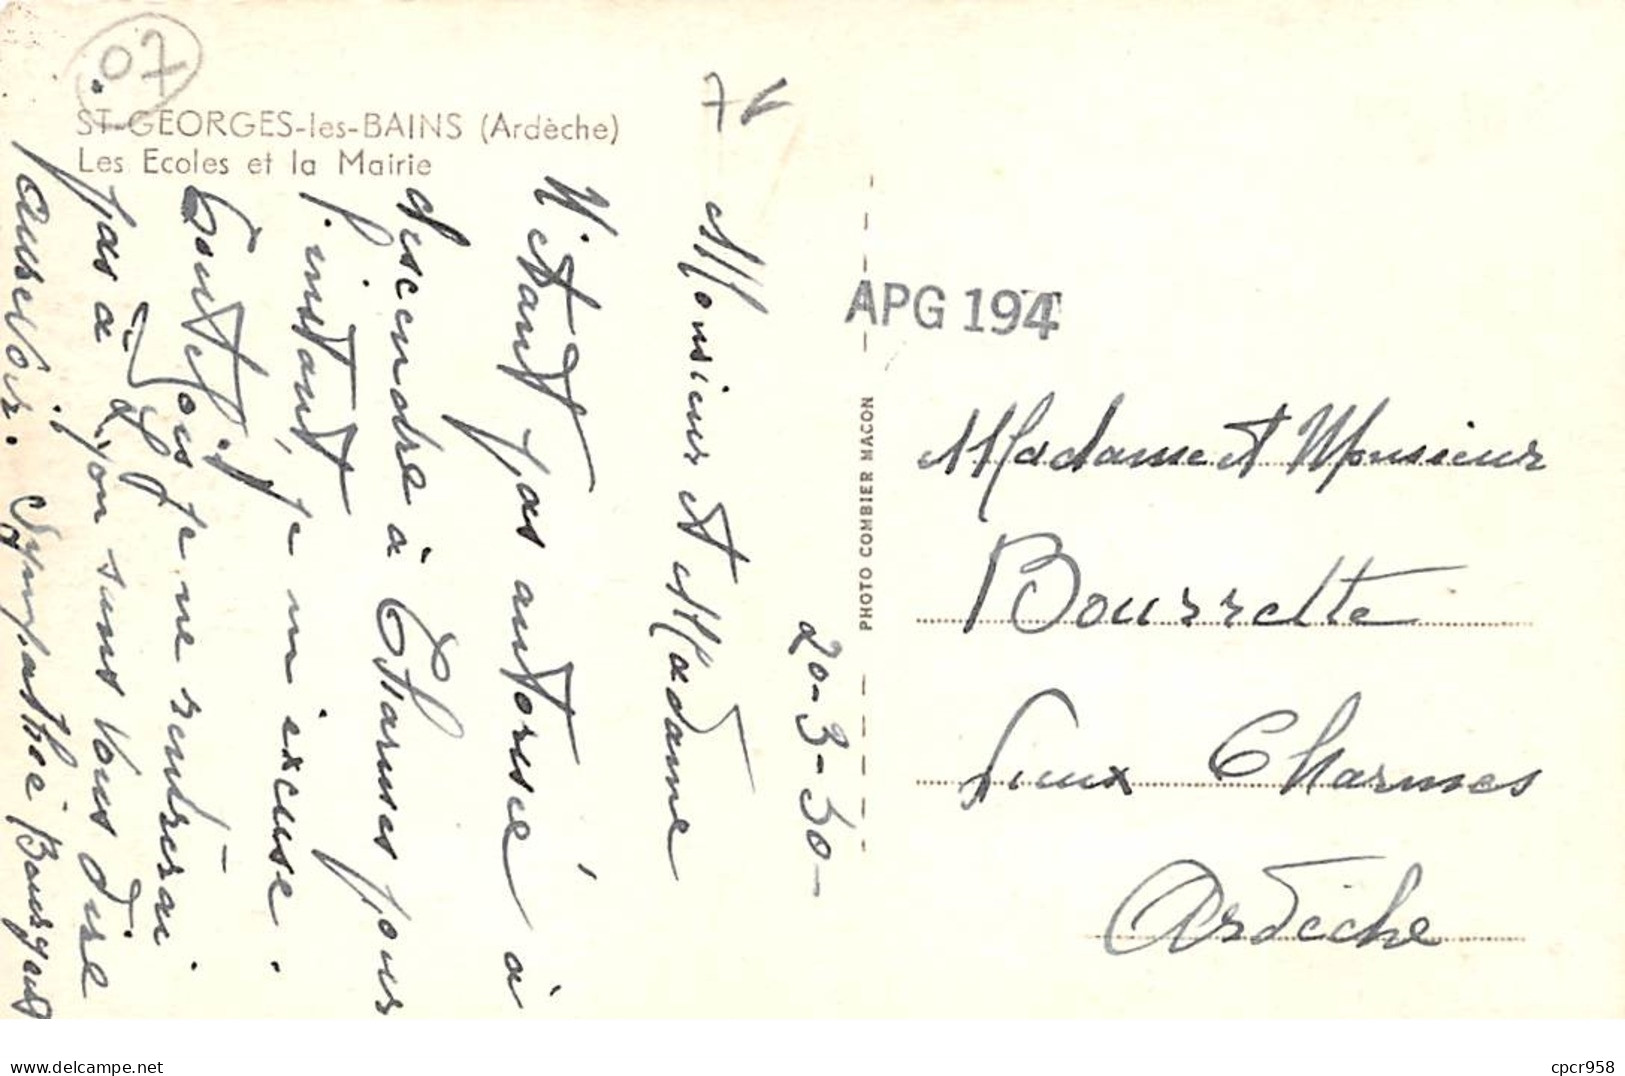 07
ST-GEORGES-les-BAINS (Ardèche)
Les Ecoles et la Mairie
20-3-50-
Monsieur et Madame
N'étant pas autorisé à
descendre à Charmes pour
l'instant, je m'excuse.
Toutefois je ne rentrerai
pas à Lyon sans vous dire
au revoir. Sympathie Bourgaud
PHOTO COMBIER MACON
APG 194
Madame et Monsieur
Bourrette
Vieux Charmes
Ardèche
delcampe.net
cpcr958